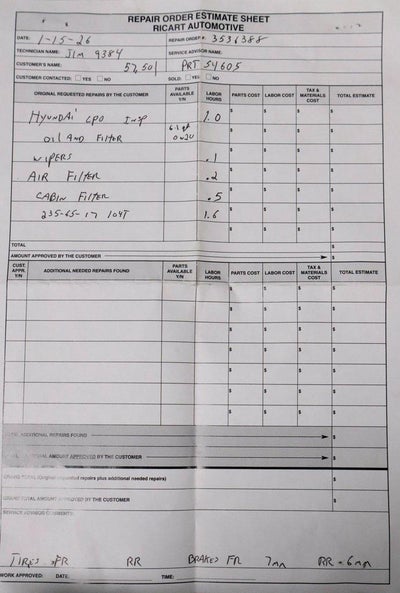 REPAIR ORDER ESTIMATE SHEET
RICART AUTOMOTIVE
DATE: 1-15-26 REPAIR ORDER #: 3536388
TECHNICIAN NAME: JIM 9384 SERVICE ADVISOR NAME:
CUSTOMER'S NAME: 57,501 PRT 54605
CUSTOMER CONTACTED: YES NO SOLD: YES NO
ORIGINAL REQUESTED REPAIRS BY THE CUSTOMER PARTS AVAILABLE Y/N LABOR HOURS PARTS COST LABOR COST TAX & MATERIALS COST TOTAL ESTIMATE
HYUNDAI CPO INSP 1.0 $ $ $ $
OIL AND FILTER 6.1 qt 0W20 $ $ $ $
WIPERS .1 $ $ $ $
AIR FILTER .2 $ $ $ $
CABIN FILTER .5 $ $ $ $
235-65-17 104T 1.6 $ $ $ $
$ $ $ $
TOTAL $
AMOUNT APPROVED BY THE CUSTOMER $
CUST. APPR. Y/N ADDITIONAL NEEDED REPAIRS FOUND PARTS AVAILABLE Y/N LABOR HOURS PARTS COST LABOR COST TAX & MATERIALS COST TOTAL ESTIMATE
$ $ $ $
$ $ $ $
$ $ $ $
$ $ $ $
$ $ $ $
$ $ $ $
$ $ $ $
TOTAL ADDITIONAL REPAIRS FOUND $
ADDITIONAL AMOUNT APPROVED BY THE CUSTOMER $
GRAND TOTAL (Original requested repairs plus additional needed repairs) $
GRAND TOTAL AMOUNT APPROVED BY THE CUSTOMER $
SERVICE ADVISOR COMMENTS:
TIRES FR RR BRAKES FR 7mm RR - 6mm
WORK APPROVED: DATE: TIME: